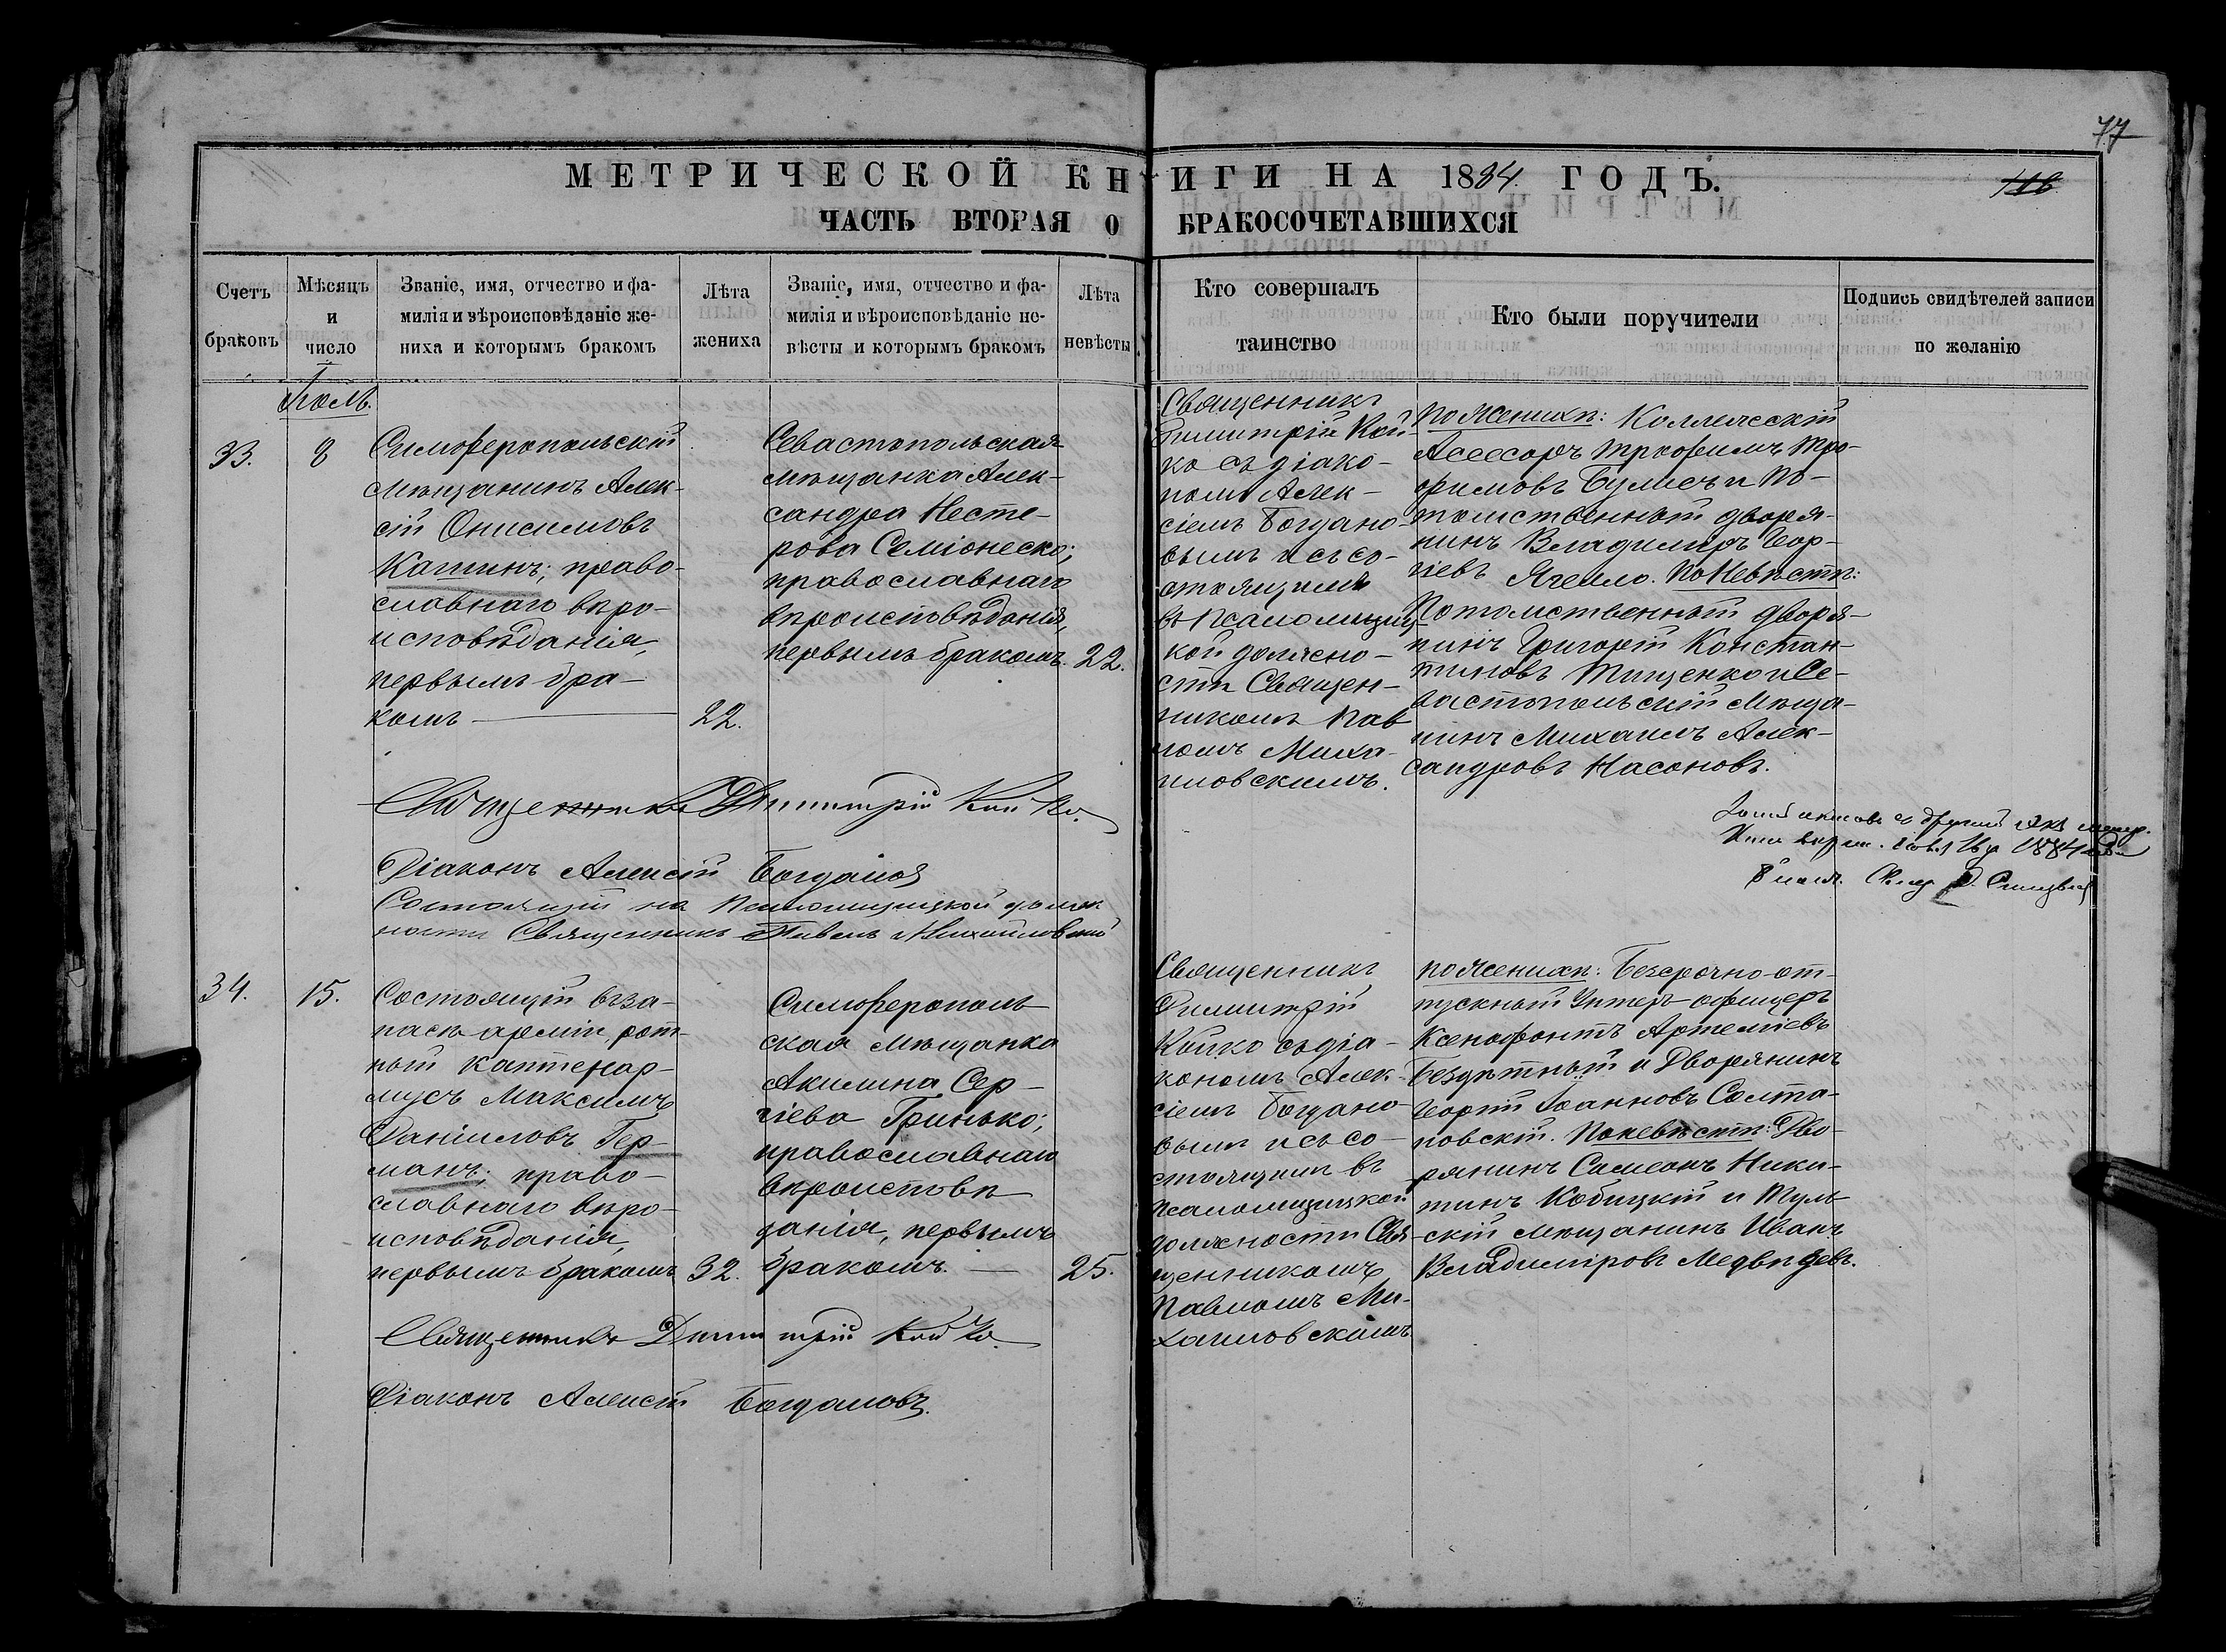 77
МЕТРИЧЕСКОЙ КНИГИ НА 1884 ГОДЪ.
118
ЧАСТЬ ВТОРАЯ О БРАКОСОЧЕТАВШИХСЯ
Счетъ браковъ
Мѣсяцъ и число
Званіе, имя, отчество и фа-
милія и вѣроисповѣданіе же-
ниха и которымъ бракомъ
Лѣта жениха
Званіе, имя, отчество и фа-
милія и вѣроисповѣданіе не-
вѣсты и которымъ бракомъ
Лѣта невѣсты
Кто совершалъ
таинство
Кто были поручители
Подпись свидѣтелей записи
по желанію
Іюль.
33.
8
Симферопольскій
мѣщанинъ Алек-
сій Онисимовъ
Кашинъ; право-
славнаго вѣро-
исповѣданія,
первымъ бра-
комъ
22.
Севастопольская
мѣщанка Алек-
сандра Несте-
рова Семіонеско;
православнаго
вѣроисповѣданія,
первымъ бракомъ.
22.
Священникъ
Димитрій Кой-
ко съ діако-
номъ Алек-
сіемъ Богдано-
вымъ и съ со-
стоящимъ
въ псаломщиц-
кой должно-
сти Священ-
никомъ Пав
ломъ Миха-
иловскимъ.
по Женихѣ: Коллежскій
Асессоръ Трофимъ Тро-
фимовъ Булисъ и По-
томственный дворя-
нинъ Владимиръ Геор-
гіевъ Ягелло. По Невѣстѣ:
Потомственный дворя-
нинъ Григорій Констан-
тиновъ Тищенко и Се-
вастопольскій мѣща-
нинъ Михаилъ Алек-
сандровъ Насоновъ.
Священникъ Димитрій Койко.
Діаконъ Алексій Богдановъ
Состоящій на Псаломщицкой долж
ности Священникъ Павелъ Михайловскій
1884 года
8 іюля.
34.
15.
Состоящій въ за-
пасѣ арміи, рот-
ный каптенар-
мусъ Максимъ
Даніиловъ Гер-
манъ; право-
славнаго вѣро-
исповѣданія,
первымъ бракомъ
32.
Симферополь
ская мѣщанка
Акилина Сер-
гіева Гринько;
православнаго
вѣроисповѣ
данія, первымъ
бракомъ.
25.
Священникъ
Димитрій
Койко съ діа-
кономъ Алек-
сіемъ Богдано-
вымъ и съ со-
стоящимъ въ
псаломщицкой
должности Свя
щенникомъ
Павломъ Ми-
хаиловскимъ
по Женихѣ: Безсрочно-от-
пускный Унтеръ-офицеръ
Ксенофонтъ Артеміевъ
Бездѣтный и Дворянинъ
Георгій Іоанновъ Солта-
новскій. По невѣстѣ: Дво-
рянинъ Самсонъ Ники-
тинъ Кобицкій и Туль-
скій мѣщанинъ Иванъ
Владиміровъ Медвѣдевъ.
Священникъ Димитрій Койко.
Діаконъ Алексій Богдановъ.